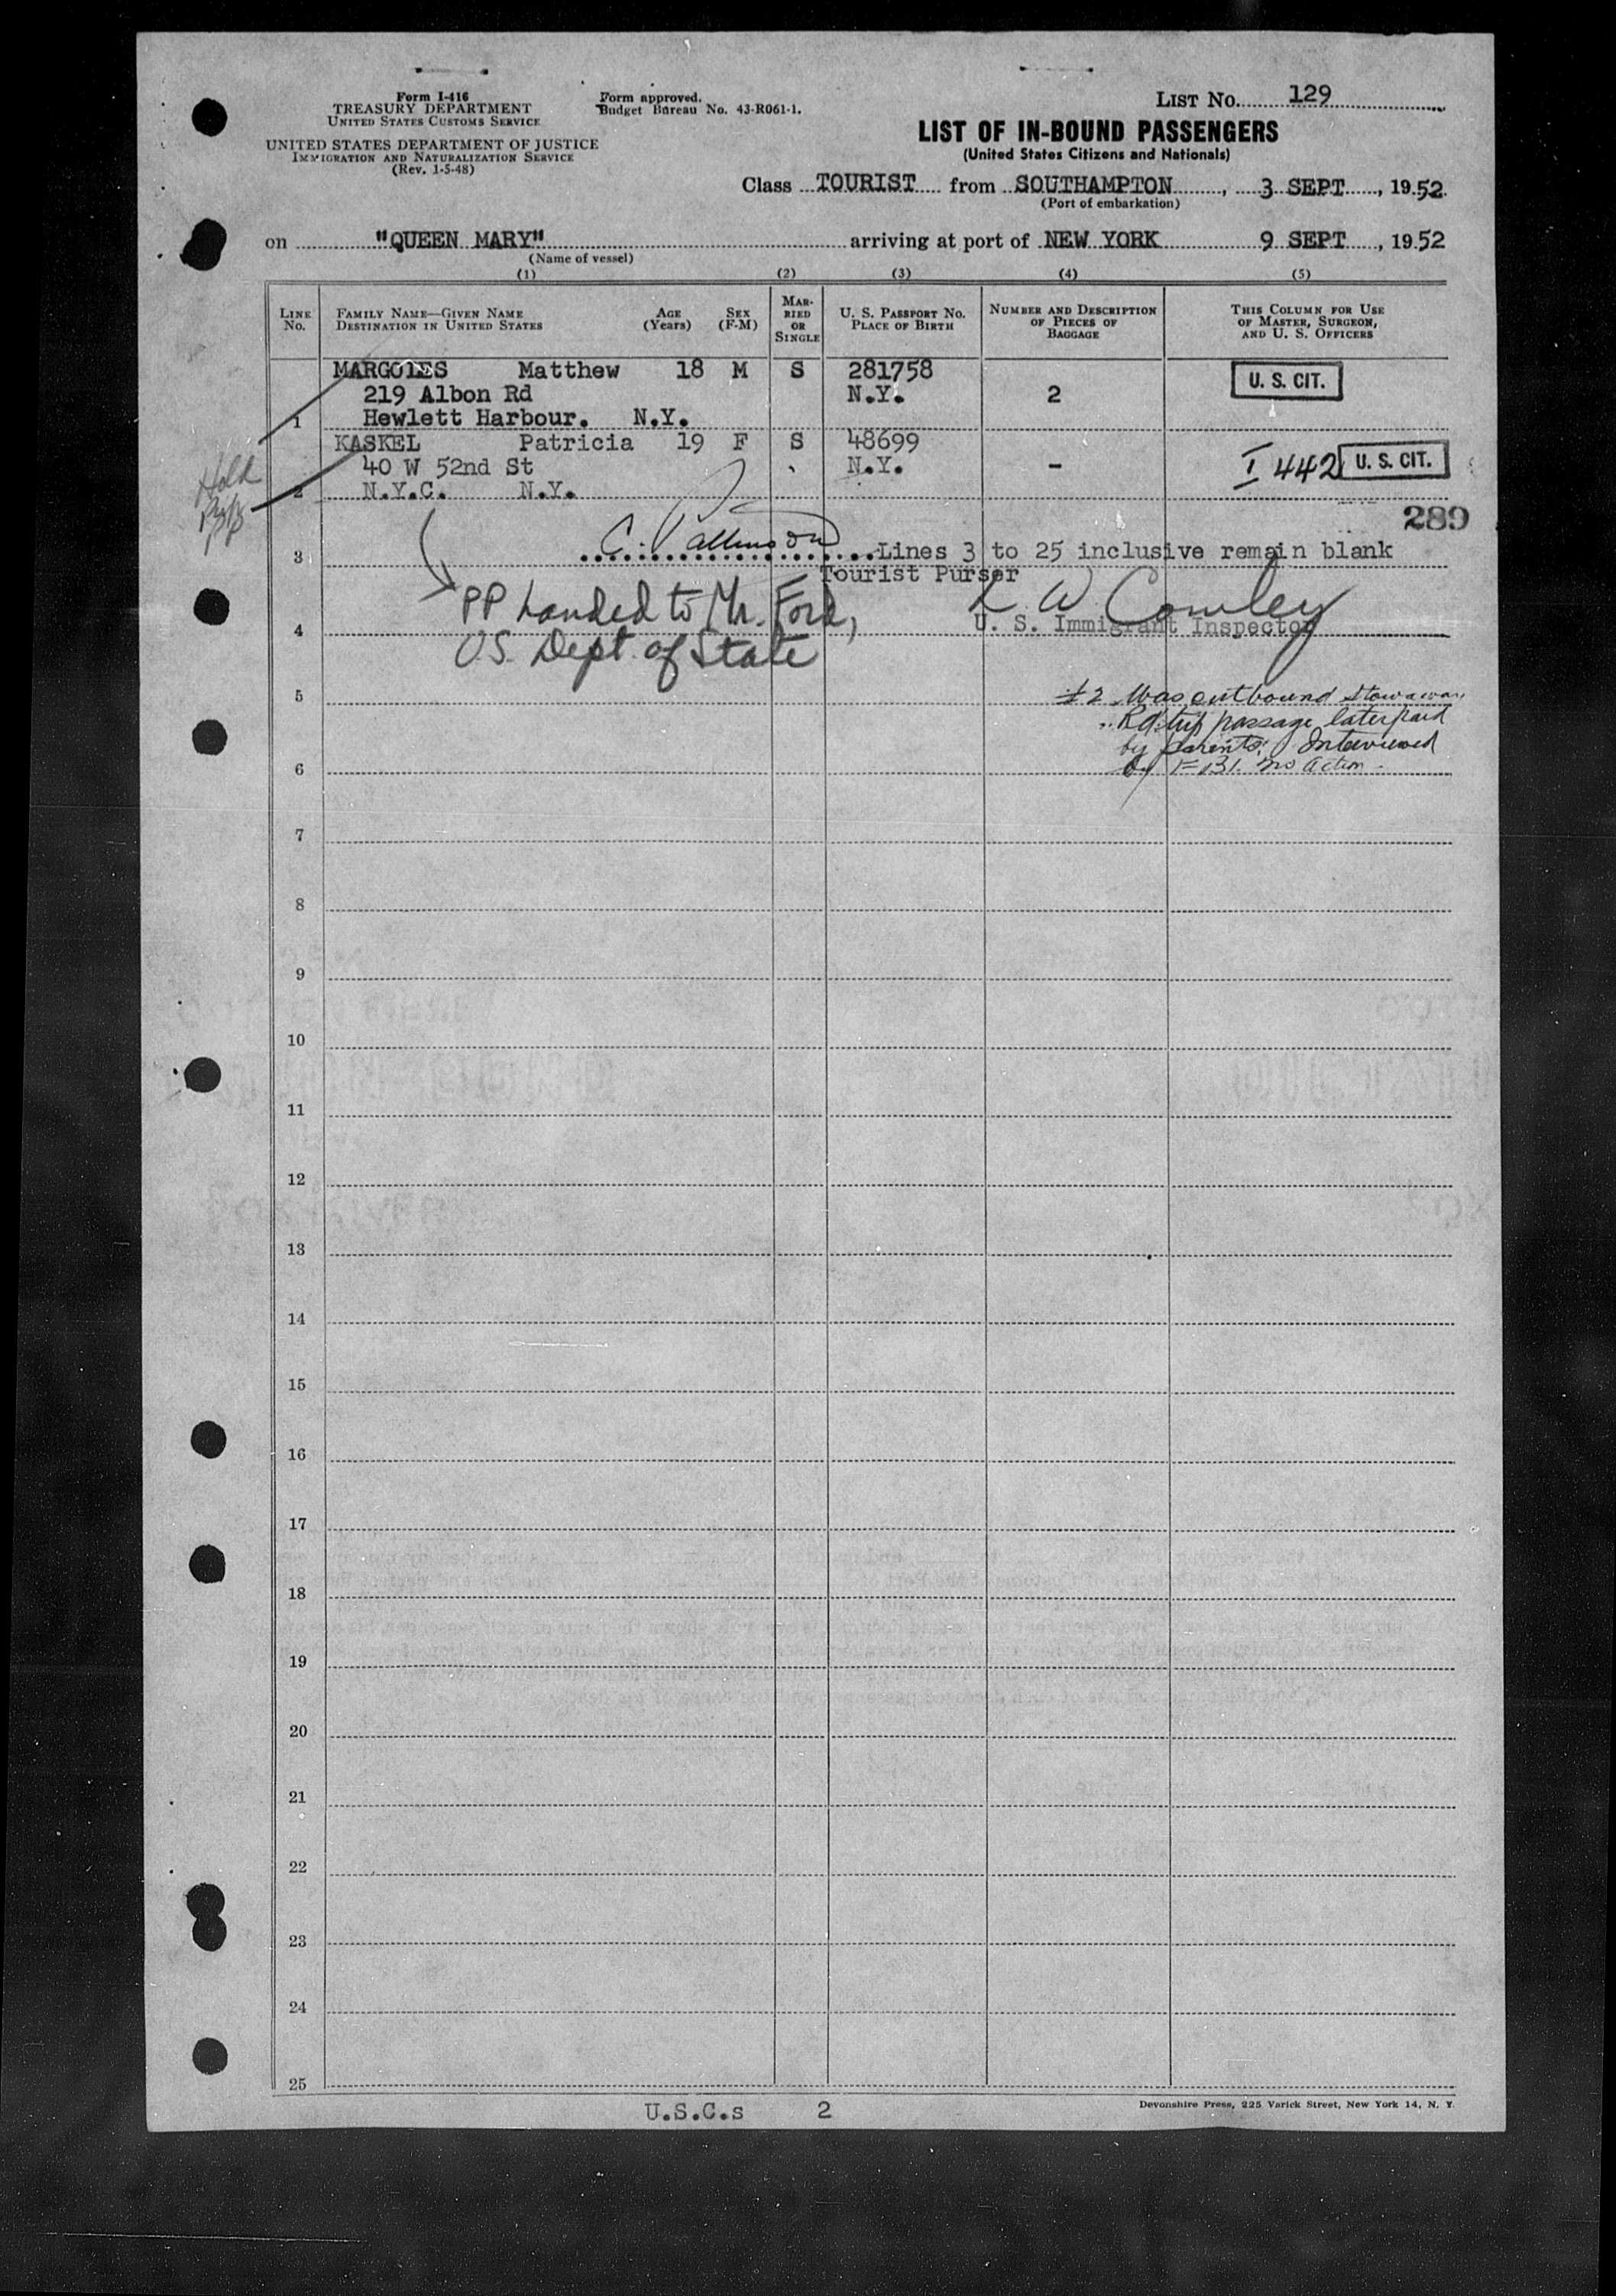 Form I-416
TREASURY DEPARTMENT
UNITED STATES CUSTOMS SERVICE
UNITED STATES DEPARTMENT OF JUSTICE
IMMIGRATION AND NATURALIZATION SERVICE
(Rev. 1-5-48)
Form approved.
Budget Bureau No. 43-R061-1.
LIST No. 129
LIST OF IN-BOUND PASSENGERS
(United States Citizens and Nationals)
Class TOURIST from SOUTHAMPTON, 3 SEPT, 1952
(Port of embarkation)
on "QUEEN MARY" arriving at port of NEW YORK 9 SEPT, 1952
(Name of vessel)
(1) (2) (3) (4) (5)
LINE No.
FAMILY NAME—GIVEN NAME
DESTINATION IN UNITED STATES
AGE (Years)
SEX (F-M)
MARRIED OR SINGLE
U. S. PASSPORT NO.
PLACE OF BIRTH
NUMBER AND DESCRIPTION OF PIECES OF BAGGAGE
THIS COLUMN FOR USE OF MASTER, SURGEON, AND U. S. OFFICERS
MARGOLES Matthew 18 M S 281758 U. S. CIT.
219 Albon Rd N.Y. 2
1 Hewlett Harbour. N.Y.
KASKEL Patricia 19 F S 48699
40 W 52nd St N.Y. – I 442 U. S. CIT.
2 N.Y.C. N.Y.
Hold
289
C. Pattinson
3 Lines 3 to 25 inclusive remain blank
Tourist Purser
PP handed to Mr. Ford,
U.S. Dept. of State
L W Cowley
4 U. S. Immigrant Inspector
5 #2 Was outbound stowaway
Rd trip passage later paid
by parents. Interviewed
6 by FBI. no action -
7
8
9
10
11
12
13
14
15
16
17
18
19
20
21
22
23
24
25
U.S.C.s 2
Devonshire Press, 225 Varick Street, New York 14, N. Y.